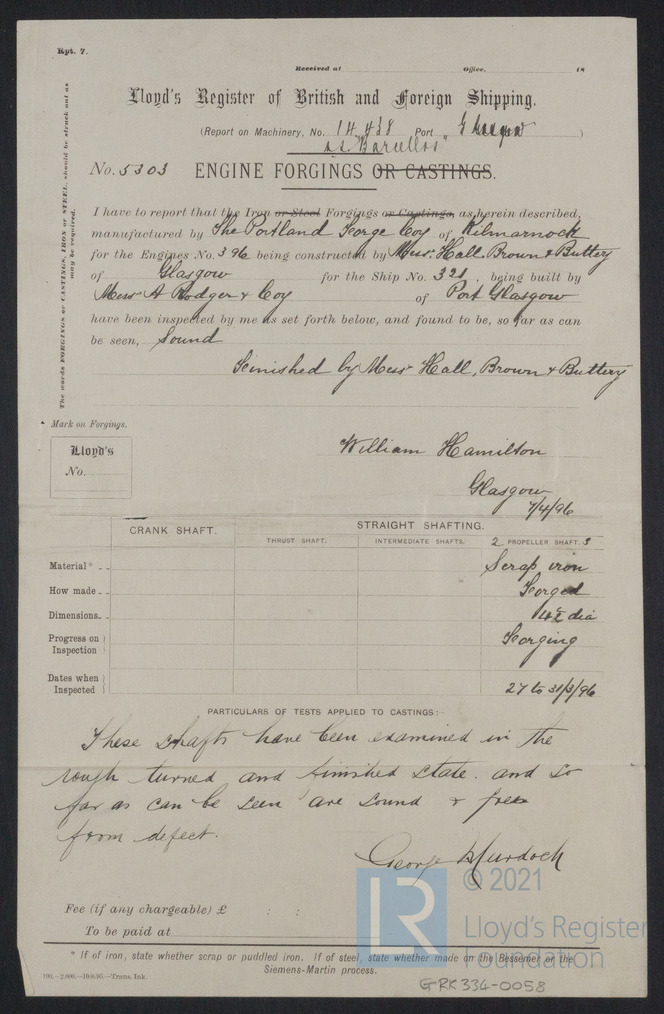 Rpt. 7.
Received at Office, 18
Lloyd's Register of British and Foreign Shipping.
(Report on Machinery, No. 14438 Port Glasgow)
s.s. "Barcellos"
No. 5303 ENGINE FORGINGS OR CASTINGS.
The words FORGINGS or CASTINGS, IRON or STEEL, should be struck out as may be required.
I have to report that the Iron or Steel Forgings or Castings, as herein described,
manufactured by The Portland Forge Coy of Kilmarnock
for the Engines No. 396 being constructed by Messrs. Hall, Brown & Buttery
of Glasgow for the Ship No. 321, being built by
Messrs A Rodger & Coy of Port Glasgow
have been inspected by me as set forth below, and found to be, so far as can
be seen, Sound
Finished by Messrs Hall, Brown & Buttery
Mark on Forgings.
Lloyd's
No.
William Hamilton
Glasgow
7/4/96
CRANK SHAFT. STRAIGHT SHAFTING.
THRUST SHAFT. INTERMEDIATE SHAFTS. 2 PROPELLER SHAFT. S
Material* Scrap iron
How made Forged
Dimensions dia
Progress on Inspection Forging
Dates when Inspected 27 to 31/3/96
PARTICULARS OF TESTS APPLIED TO CASTINGS:—
These shafts have been examined in the
rough turned and finished state. and so
far as can be seen are sound & free
from defect.
George Murdoch
Fee (if any chargeable) £ : :
To be paid at
* If of iron, state whether scrap or puddled iron. If of steel, state whether made on the Bessemer or the
Siemens-Martin process.
Trans. Ink.
GRK334-0058
LR
© 2021
Lloyd's Register
Foundation